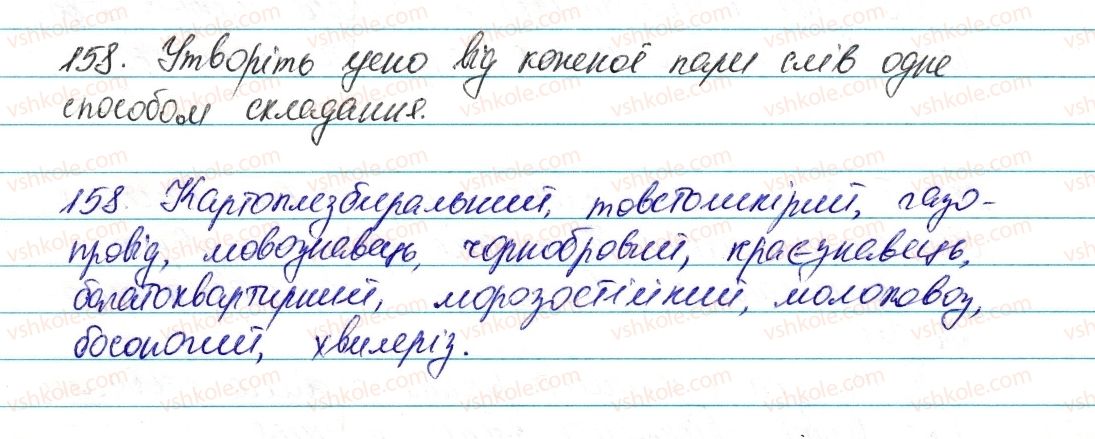 158. Утворіть усно від кожної пари слів одне
способом складання.
158. Картоплезбиральний, товстошкірий, газо-
провід, мовознавець, чорнобровий, краєзнавець,
багатоквартирний, морозостійкий, молоковоз,
босоногий, хвилеріз.